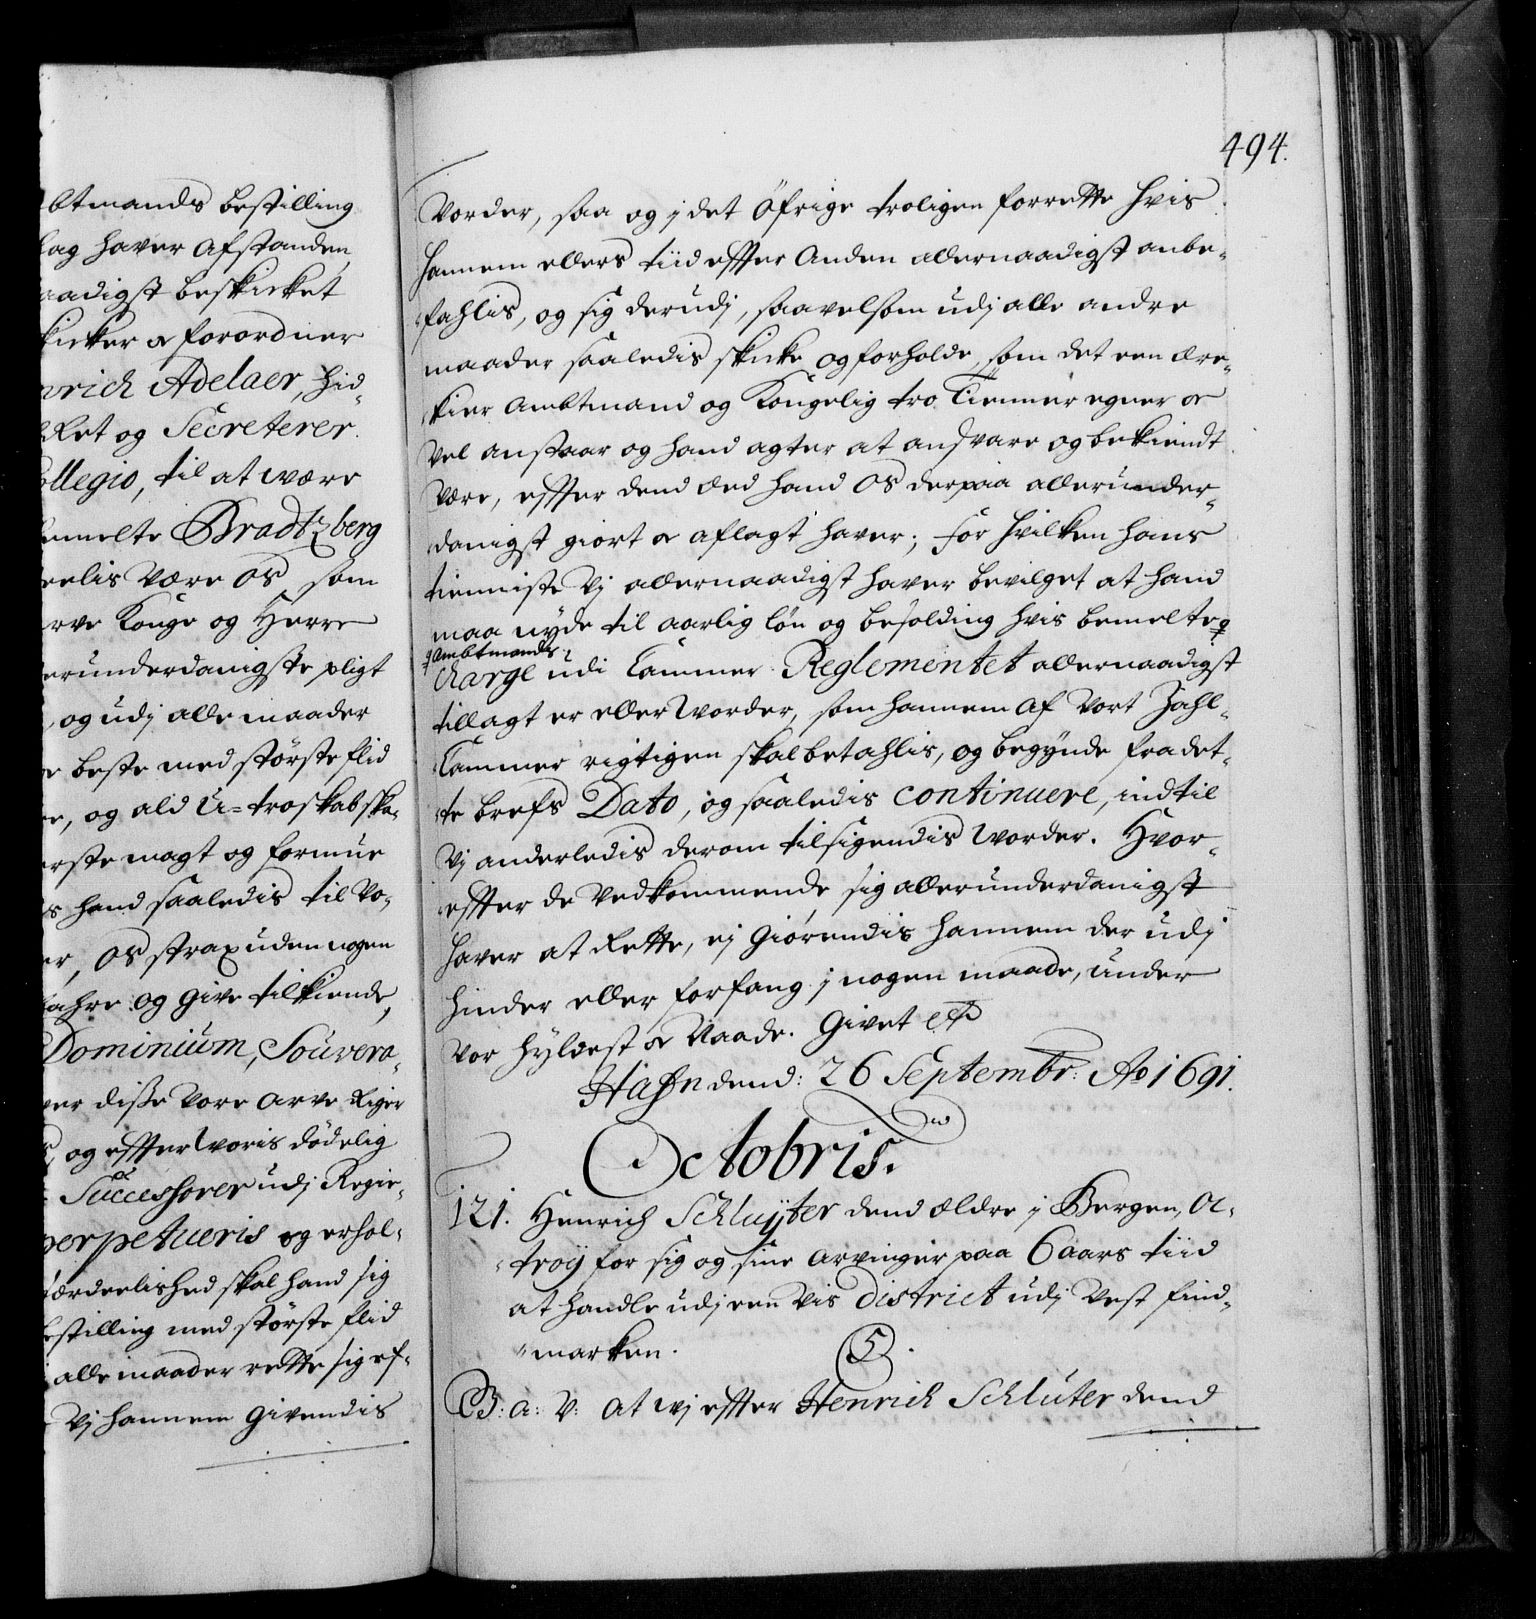 btmands bestilling
lag haver afstanden
aadigst beskicket
kicker oc forordner
nrich Adelaer, hid-
Ret og Secreterer
ollegio, til at være
emelte Bradtzberg
eelis være os som
rve Konge og Herre
erunderdanigste pligt
, og udj alle maader
e beste med største flid
re, og ald U-troskab ska-
erste magt og formue
s hand saaledis til vo-
er, os strax uden nogen
fahre og give tilkiende,
Dominium, Souvera-
ver disse vore arve Riger
og effter Woris dødelig
Successorer udj Regie-
perpetueris og erhol-
færdeelished skal hand sig
estilling med største flid
alle maader rette sig ef-
Vj hannem givendis
494.
Vorder, saa og j det øfrige troligen forrette hvis
hannem ellers tiid effter anden allernaadigst anbe-
fahlis, og sig derudj, saavelsom udj alle andre
maader saaledis skicke og forholde, som det een ære-
kier Ambtmand og Kongelig tro Tienner egner oc
vel anstaar og hand agter at andsvare og bekiendt
være, effter dend Æed hand os derpaa allerunder-
danigst giort oc aflagt haver; for hvilken hans
tienniste Vj allernaadigst haver bevilget at hand
maa nyde til aarlig løn og besolding hvis bemelte
Ambtmands
charge udi Cammer Reglementet allernaadigst
tillagt er eller Worder, som hannem af Vort Zahl-
Cammer rigtigen skal betahlis, og begynde fra det-
te brefs Dato, og saaledis continuere, indtil
Vj anderledis derom tilsigendis Worder. Hvor-
effter de vedkommende sig allerunderdanigst
haver at Rette, ej Giørendis hannem der udj
hinder eller forfang j nogen maade, under
Vor hyldest oc Naade. Givet etc
Hafn dend: 26 Septembr: Ao 1691.
Octobris.
121. Henrich Schluÿter dend ældre j Bergen, Oc-
troÿ for sig og sine arvinger paa 6 aars tiid
at handle udj een vis district udj Vest find-
marken.
G: a: V: at wj effter Henrich Schlüter dend